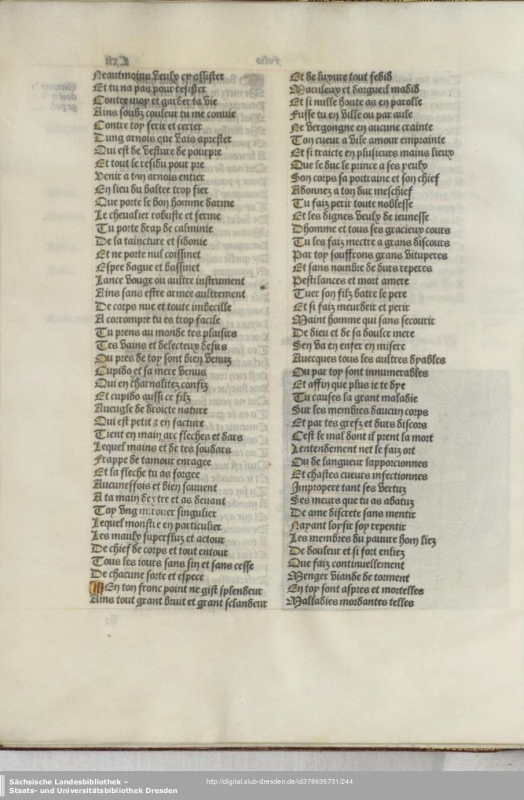 Neautmoins veulx cy assister
Et tu na pas pour resister
Contre moy et garder ta vie
Ains soubz couleur tu me conuie
Contre toy ferir et certer
Dung arnois que vais aprester
Qui est de vesture de pourpre
Et tout le residu pour pre
Venir a ton arnois entier
En lieu du baltee trop fier
Que porte le bon homme darme
Le cheualier robuste et ferme
Tu porte drap de calminie
De la taincture et sidonie
Et ne porte nul coissinet
Espee dague et bassinet
Lance vouge ou aultre instrument
Ains sans estre arme aultrement
De corps nue et toute imbecille
A corrompre tu es trop facile
Tu prens au monde tes plaisirs
Tes vains et delecteux desirs
Ou pres de toy sont bien venuz
Cupido et sa mere venus
Qui en charnalitez confiz
Et cupido aussi ce filz
Aueugle de droicte nature
Qui est petit a en facture
Tient en main arc fleches et dars
Lequel mains et de tes souldars
Frappe de lamour enragee
Et la fleche tu as forgee
Aucuneffois et bien souuent
A ta main dextre et as deuant
Toy vng mirouer singulier
Lequel monstre en particulier
Les maulx superfluz et actour
De chief de corps et tout entour
Tous les iours sans fin et sans cesse
De chacune sorte et espece
En ton fronc point ne gist splendeur
Ains tout grant bruit et grant sclandeur
Et de luxure tout fedid
Maculeux et dorgueil madid
Et si nulle honte as en parolle
Fusse tu en ville ou par aule
Ne vergongne en aucune crainte
Ton cueur a vile amour emprainte
Et si traicte en plusieurs mains lieux
Que le duc le prince a ses yeulx
Son corps sa poitraine et son chief
Adonnez a ton dur meschief
Tu faiz perir toute noblesse
Et les dignes veulx de ieunesse
Dhomme et tous ses gracieux cours
Tu les faiz mectre a grans discours
Par toy souffrons grans vituperes
Et sans nombre de durs reperes
Pestilances et mort amere
Tuer son filz batre le pere
Et si faiz meurdrir et perir
Maint homme qui sans secourir
De dieu et de sa doulce mere
Sen va en enfer en misere
Auecques tous les aultres dyables
Ou par toy sont innumerables
Et affin que plus ie te dye
Tu causes la grant maladie
Sur les membres daucun corps
Et par tes grefz et durs discors
Cest le mal dont il prent la mort
Lentendement net le faiz ort
Ou de langueur lapporcionnes
Et chastes cueurs infectionnes
Impropere tant ses vertuz
Ses meurs que tu as abatuz
De ame discrete sans mentir
Nayant loysir soy repentir
Les membres du pauure hom liez
De douleur et si fort enliez
Que faiz continuellement
Menger viande de torment
En toy sont aspres et mortelles
Malladies mordantes telles
Sächsische Landesbibliothek –
Staats- und Universitätsbibliothek Dresden
http://digital.slub-dresden.de/id378636731/244